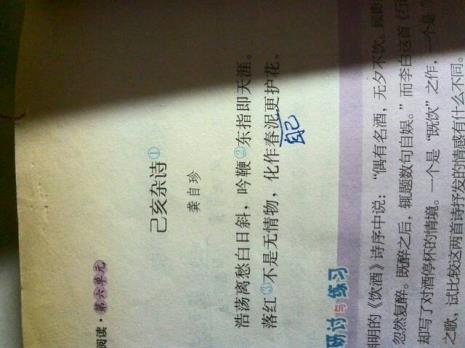 阅读·第六单元
己亥杂诗①
龚自珍
浩荡离愁白日斜，吟鞭②东指即天涯。
落红③不是无情物，化作春泥更护花。
自己
研讨与练习
明的《饮酒》诗序中说：“偶有名酒，无夕不饮。
忽然复醉。既醉之后，辄题数句自娱。”而李白这首《行
却写了对酒停杯的情境。一个是“既饮”之作，一个是“
之歌，试比较这两首诗抒发的情感有什么不同。